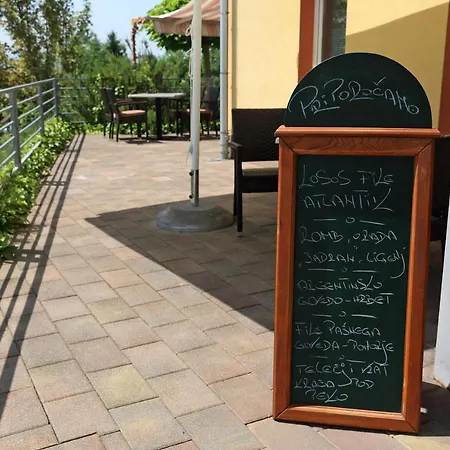 PRIPOROČAMO
LOSOS FILE
ATLANTIK
ROMB, ORADA
JADRAN, LIGNJI
ARGENTINSKO
GOVEDO - HRBET
FILE PAŠNEGA
GOVEDA - POHORJE
TELEČJI VRAT
KRAČA POD
PEKO